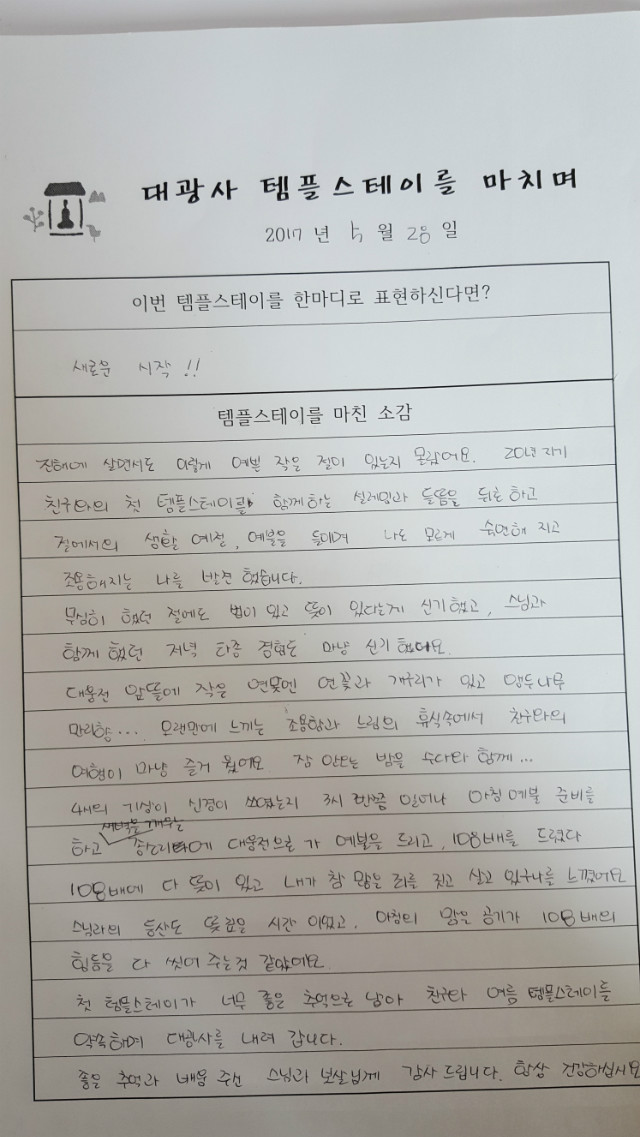 대광사 템플스테이를 마치며
2017 년 5 월 28 일
이번 템플스테이를 한마디로 표현하신다면?
새로운 시작 !!
템플스테이를 마친 소감
진해에 살면서도 이렇게 예쁜 작은 절이 있는지 몰랐어요. 20년 지기
친구와의 첫 템플스테이를 함께하는 설레임과 들뜸을 뒤로 하고
절에서의 생활 예절, 예불을 들이며 나도 모르게 숙연해 지고
조용해지는 나를 발견 했습니다.
무심히 했던 절에도 법이 있고 뜻이 있다는게 신기했고, 스님과
함께 했던 저녁 타종 경험도 마냥 신기 했어요.
대웅전 앞뜰에 작은 연못엔 연꽃과 개구리가 있고 앵두나무
만리향... 오랜만에 느끼는 조용함과 느림의 휴식속에서 친구와의
여행이 마냥 즐거 웠어요. 잠 안오는 밤을 수다와 함께...
4시의 기상이 신경이 쓰였는지 3시 반쯤 일어나 아침 예불 준비를
하고 새벽을 깨우는 종소리에 대웅전으로 가 예불을 드리고, 108배를 드렸다
108배에 다 뜻이 있고 내가 참 많은 죄를 짓고 살고 있구나를 느꼈어요
스님과의 등산도 뜻깊은 시간 이었고, 아침의 맑은 공기가 108배의
힘듬을 다 씻어 주는것 같았어요.
첫 템플스테이가 너무 좋은 추억으로 남아 친구와 여름 템플스테이를
약속하며 대광사를 내려 갑니다.
좋은 추억과 배움 주신 스님과 보살님께 감사 드립니다. 항상 건강하십시요